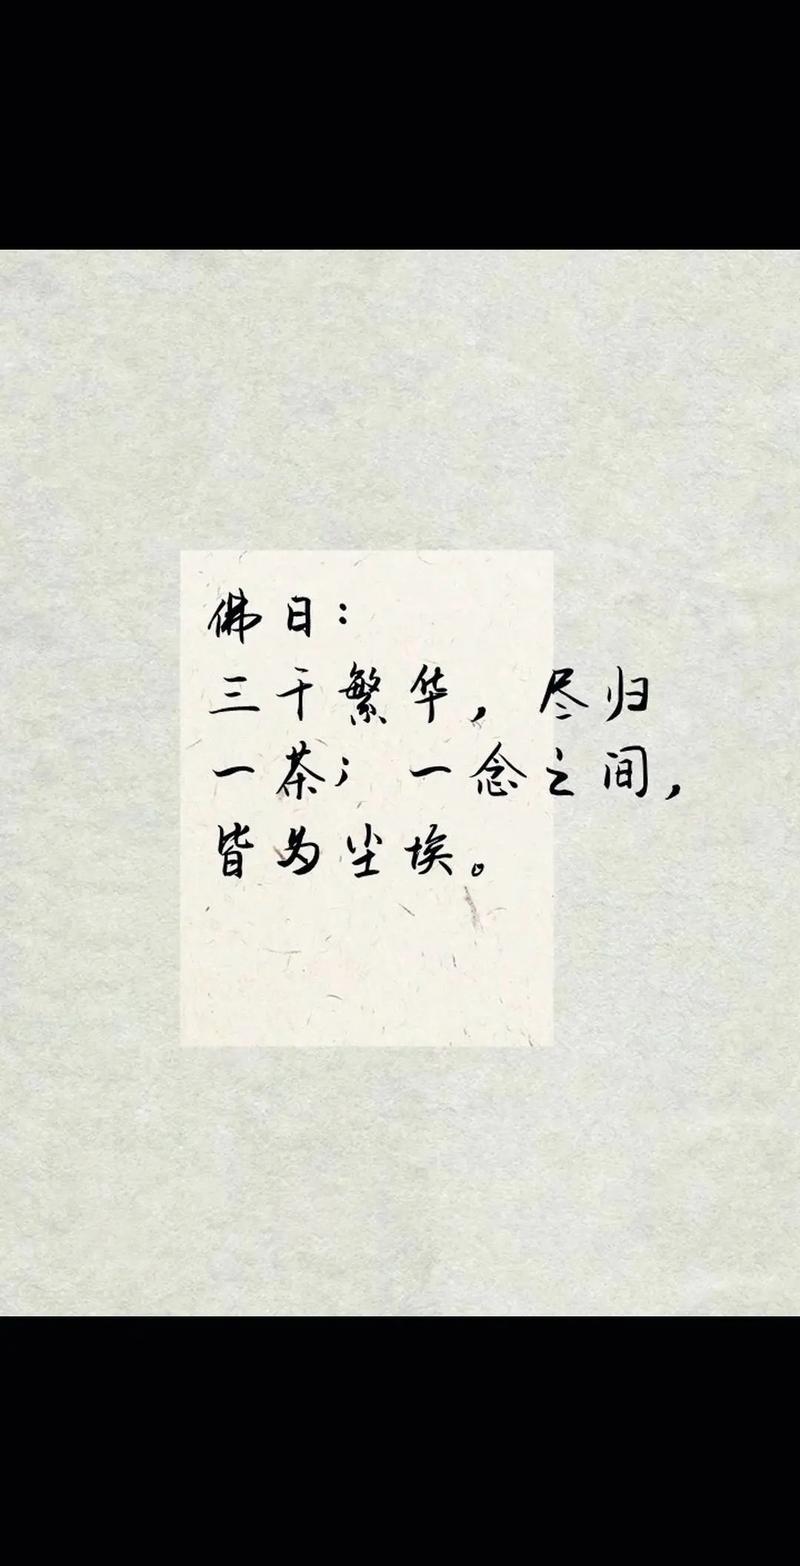 佛日：
三千繁华，尽归
一茶；一念之间，
皆为尘埃。